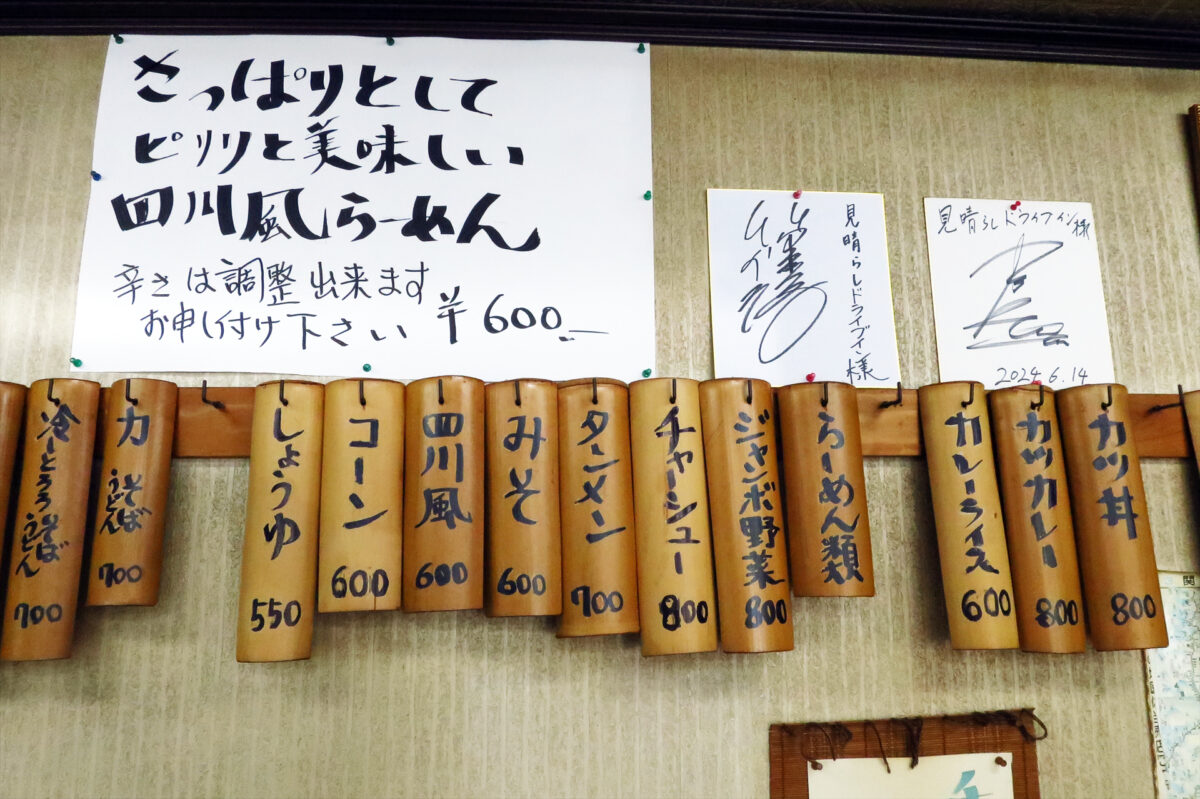 さっぱりとして
ピリリと美味しい
四川風らーめん
辛さは調整出来ます
お申し付け下さい ¥600—
見晴らしドライブイン様
見晴らしドライブイン様
2024.6.14
カツ丼 800
カツカレー 800
カレーライス 600
らーめん類
ジャンボ野菜 800
チャーシュー 800
タンメン 700
みそ 600
四川風 600
コーン 600
しょうゆ 550
力 そば うどん 700
冷しとろろ そば うどん 700